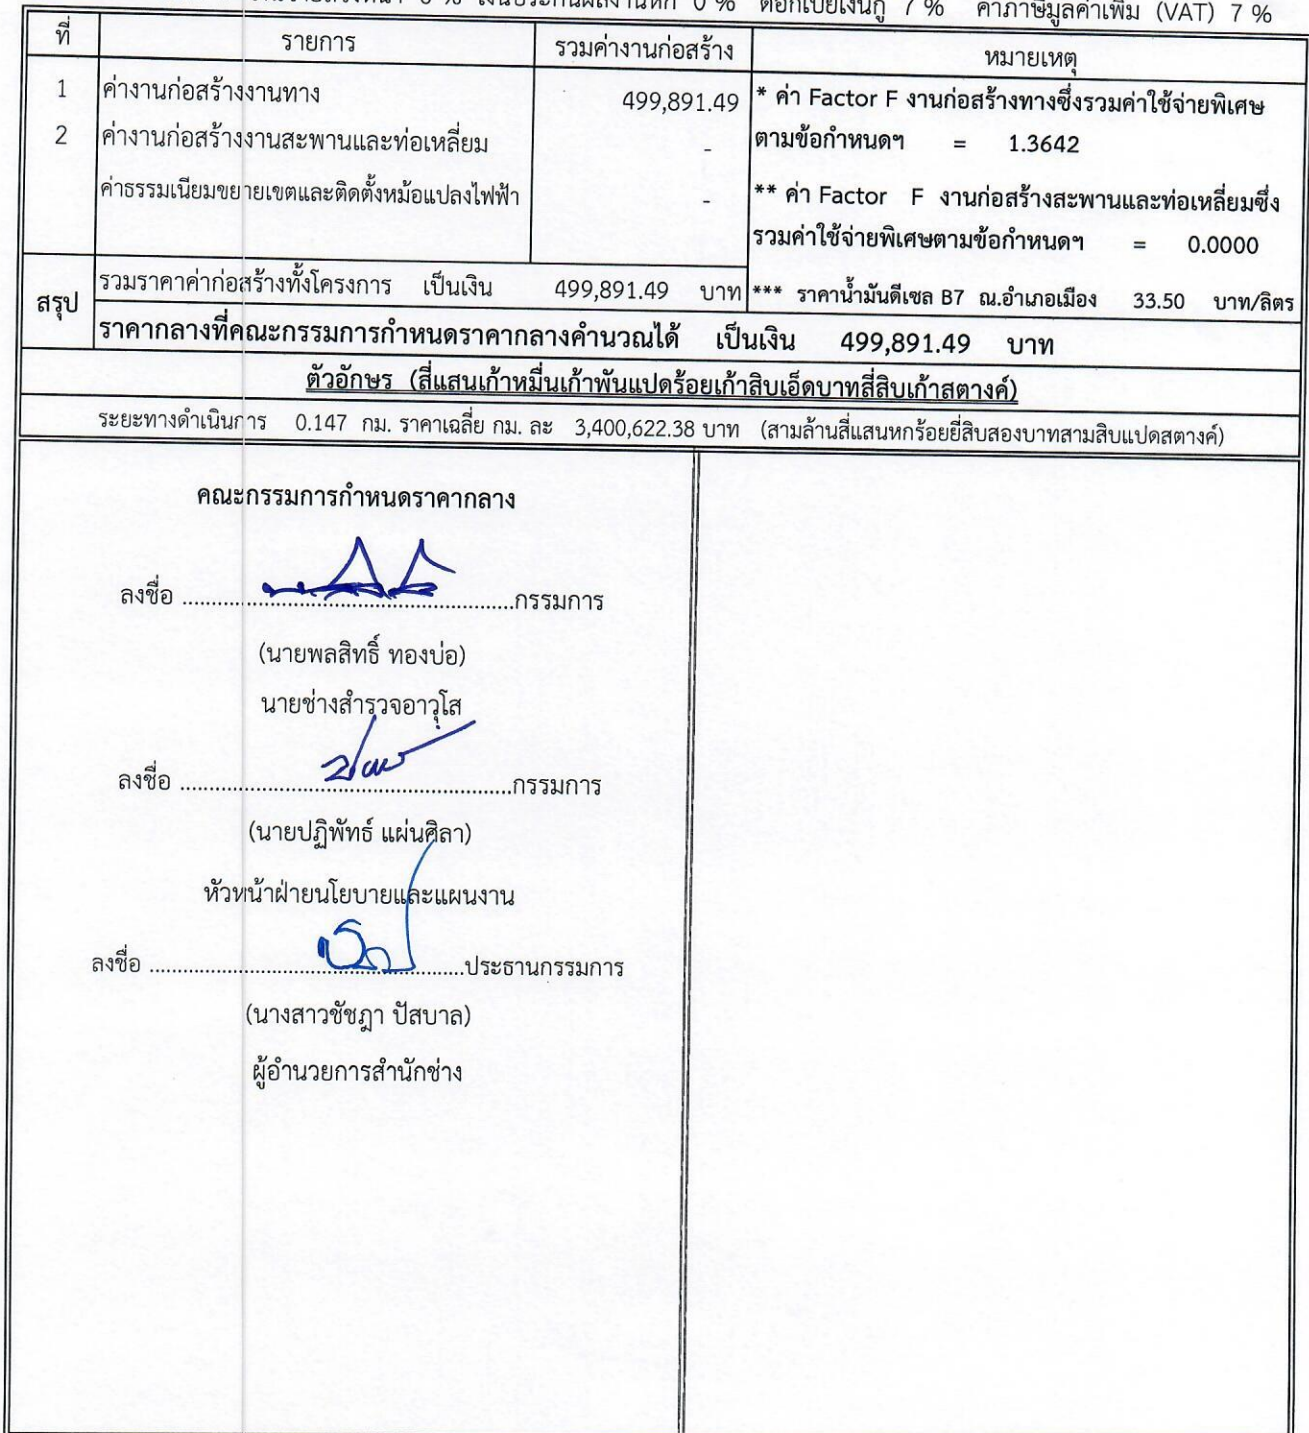 0 % เงินประกันผลงานหัก 0 % ดอกเบี้ยเงินกู้ 7 % ค่าภาษีมูลค่าเพิ่ม (VAT) 7 %
ที่ รายการ รวมค่างานก่อสร้าง หมายเหตุ
1 ค่างานก่อสร้างงานทาง 499,891.49 * ค่า Factor F งานก่อสร้างทางซึ่งรวมค่าใช้จ่ายพิเศษ
2 ค่างานก่อสร้างงานสะพานและท่อเหลี่ยม - ตามข้อกำหนดฯ = 1.3642
ค่าธรรมเนียมขยายเขตและติดตั้งหม้อแปลงไฟฟ้า - ** ค่า Factor F งานก่อสร้างสะพานและท่อเหลี่ยมซึ่ง
รวมค่าใช้จ่ายพิเศษตามข้อกำหนดฯ = 0.0000
สรุป รวมราคาค่าก่อสร้างทั้งโครงการ เป็นเงิน 499,891.49 บาท *** ราคาน้ำมันดีเซล B7 ณ.อำเภอเมือง 33.50 บาท/ลิตร
ราคากลางที่คณะกรรมการกำหนดราคากลางคำนวณได้ เป็นเงิน 499,891.49 บาท
ตัวอักษร (สี่แสนเก้าหมื่นเก้าพันแปดร้อยเก้าสิบเอ็ดบาทสี่สิบเก้าสตางค์)
ระยะทางดำเนินการ 0.147 กม. ราคาเฉลี่ย กม. ละ 3,400,622.38 บาท (สามล้านสี่แสนหกร้อยยี่สิบสองบาทสามสิบแปดสตางค์)
คณะกรรมการกำหนดราคากลาง
ลงชื่อ ........................................................กรรมการ
(นายพลสิทธิ์ ทองบ่อ)
นายช่างสำรวจอาวุโส
ลงชื่อ ........................................................กรรมการ
(นายปฏิพัทธ์ แผ่นศิลา)
หัวหน้าฝ่ายนโยบายและแผนงาน
ลงชื่อ ........................................................ประธานกรรมการ
(นางสาวชัชฎา ปัสบาล)
ผู้อำนวยการสำนักช่าง